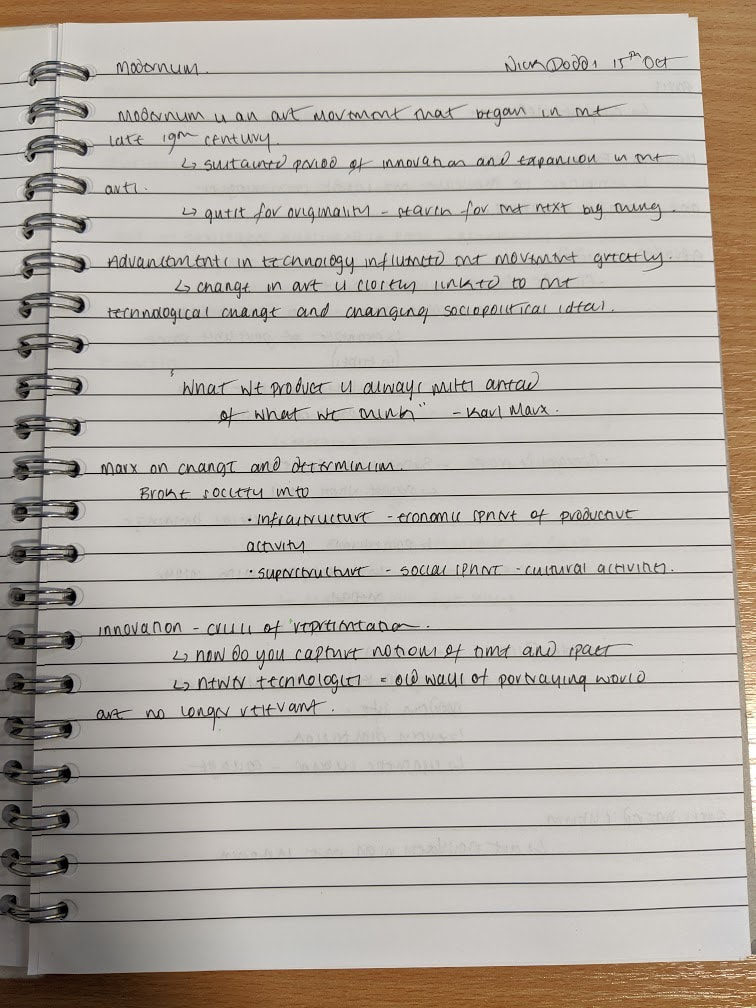 Modernism. Nick Dodds 15th Oct
Modernism is an art movement that began in the
late 19th century.
↳ sustained period of innovation and expansion in the
arts.
↳ quest for originality - search for the next big thing.
Advancements in technology influenced the movement greatly.
↳ change in art is closely linked to the
technological change and changing sociopolitical ideal.
"What we product is always miles ahead
of what we think" - Karl Marx.
Marx on change and determinism.
Broke society into
• infrastructure - economic sphere of productive
activity
• superstructure - social sphere - cultural activities.
innovation - crisis of representation.
↳ how do you capture notions of time and space
↳ newer technologies = old ways of portraying world
are no longer relevant.